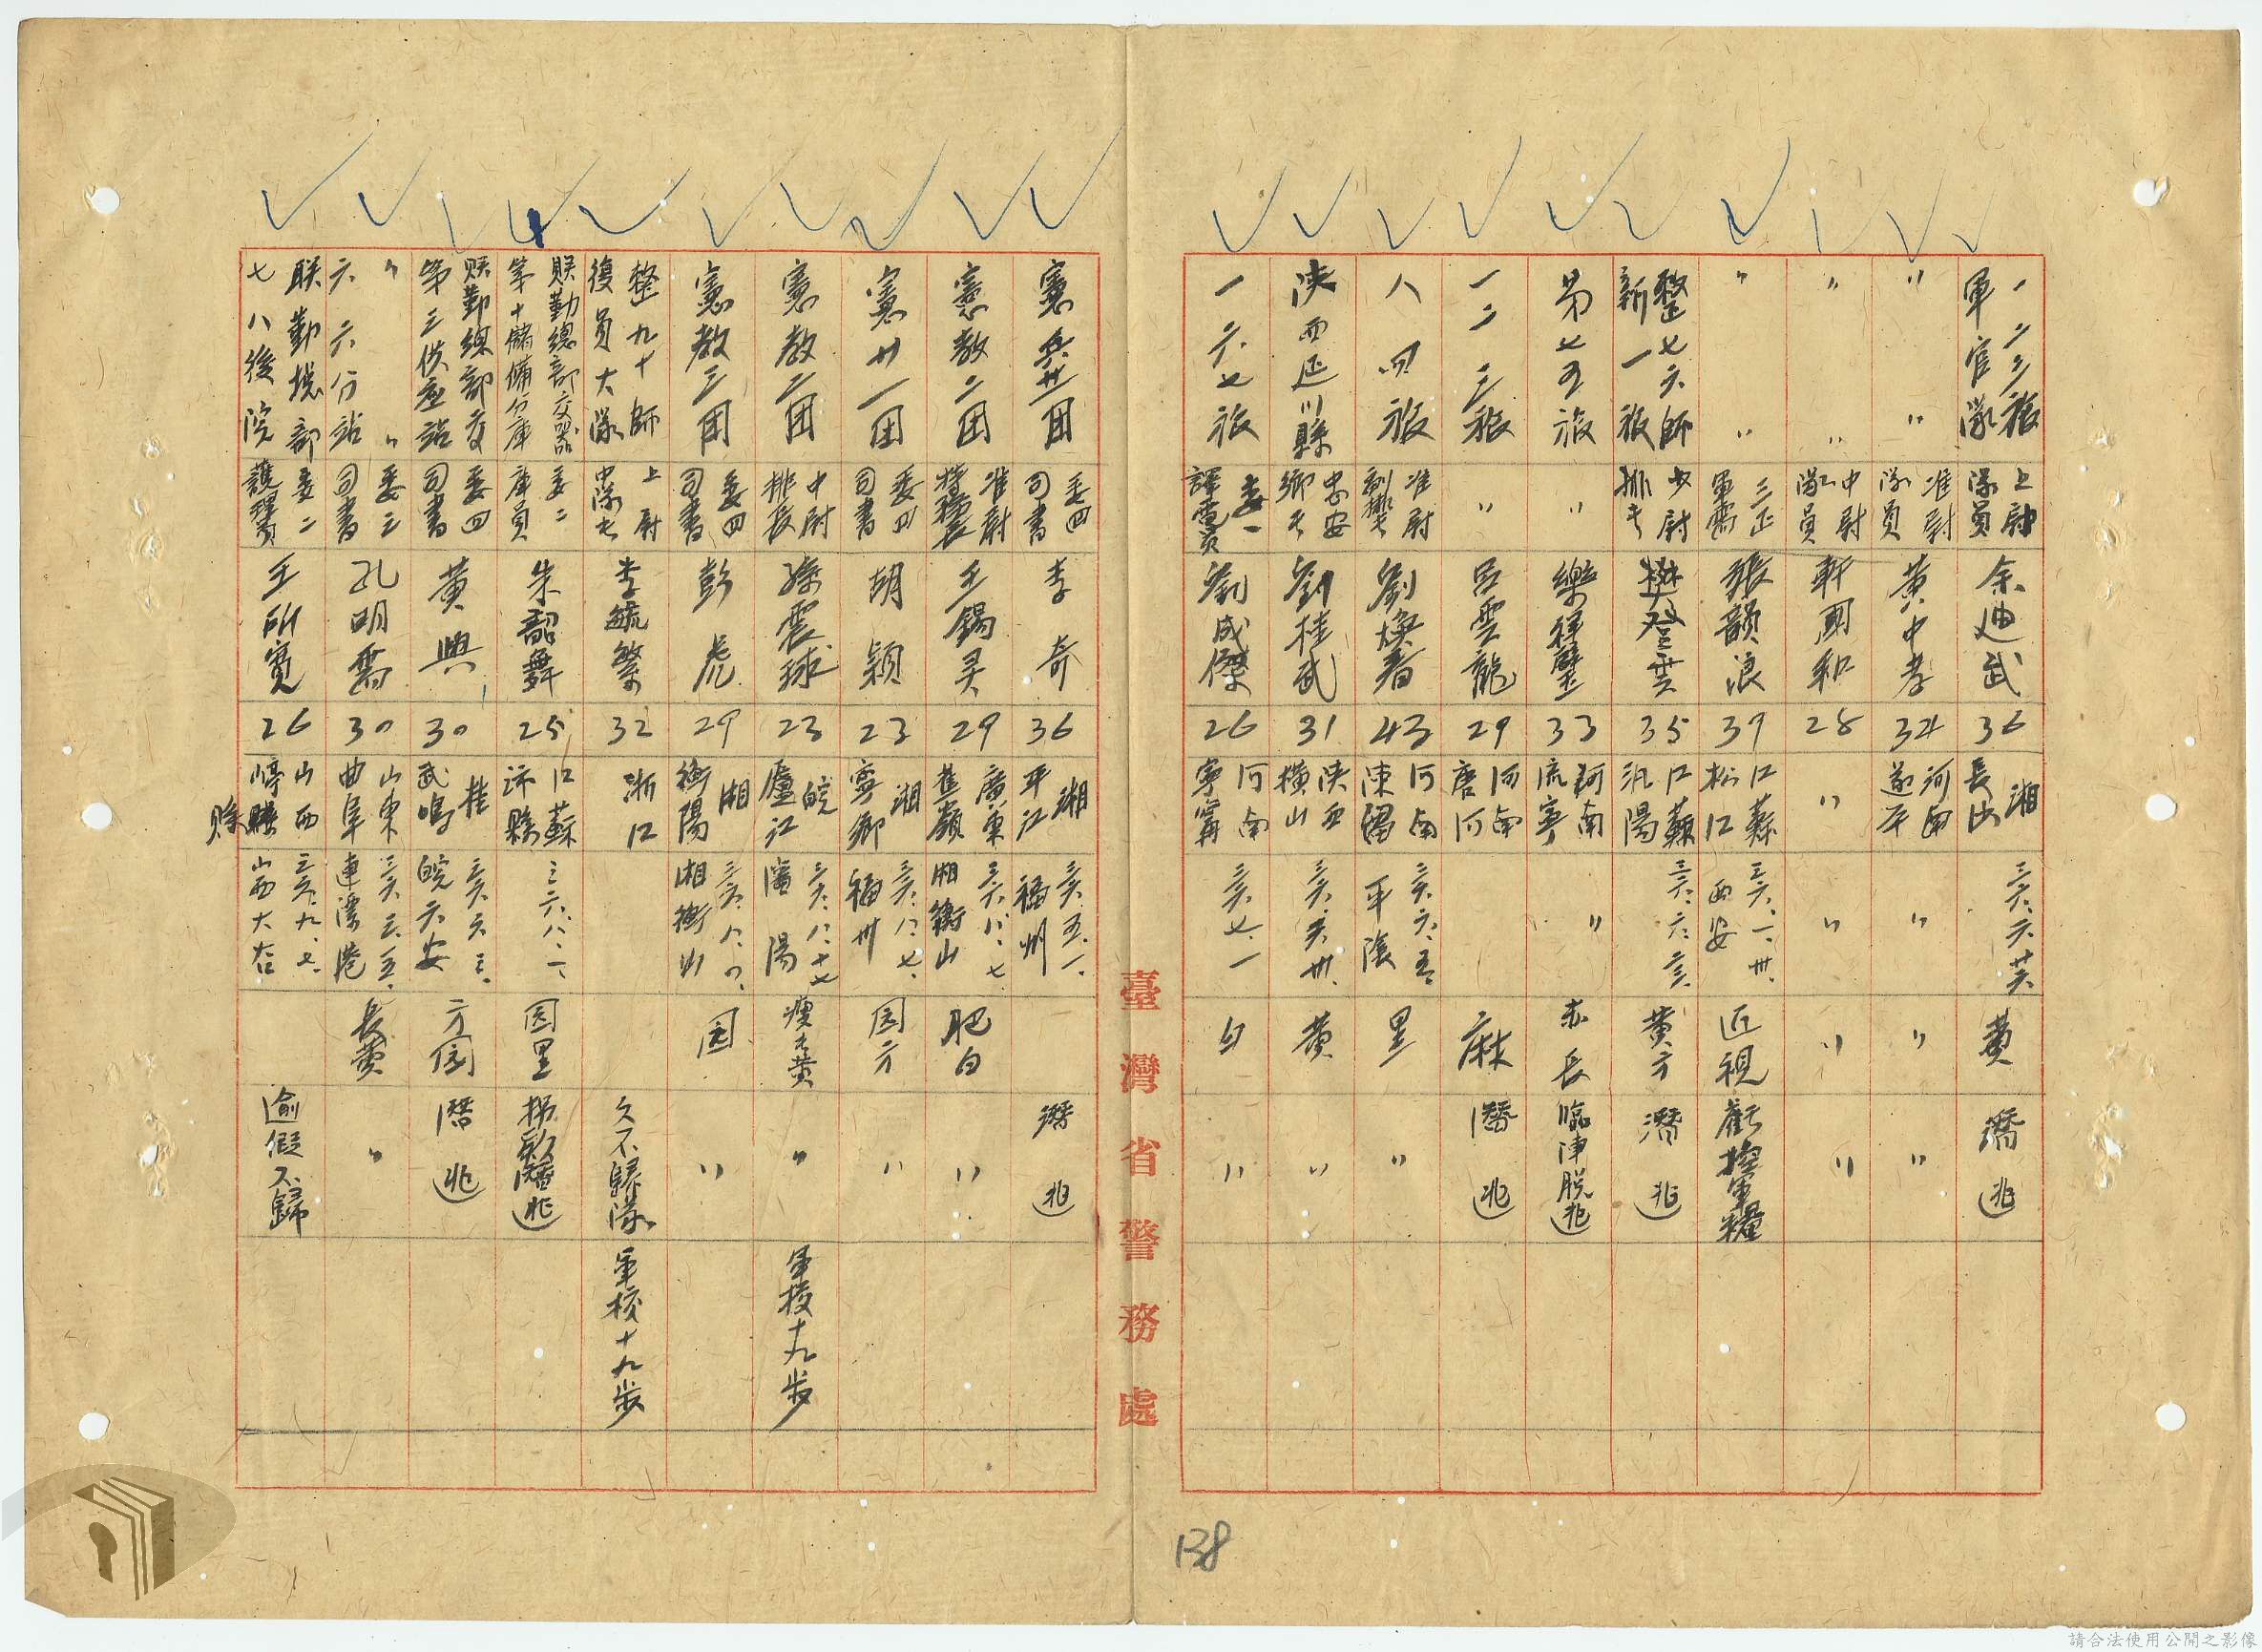 一二三旅軍官隊 上尉隊員 余迪武 36 湘長沙 三六.六.廿六 黃 潛逃
〃 〃 准尉隊員 黃中孝 34 河南遂平 〃 〃 〃
〃 〃 中尉隊員 軒國和 28 〃 〃 〃 〃
〃 〃 三正軍需 張韻浪 39 江蘇松江 三六.一.卅.西安 近視 虧撥軍糧
整七六師新一旅 少尉排長 樊登雲 35 江蘇沭陽 三六.六.二三. 黃方 潛逃
第七五旅 〃 樂祥璧 33 河南流寧 〃 赤長 臨陣脫逃
一二三旅 〃 呂雲龍 29 河南唐河 麻 潛逃
八四旅 准尉副排長 劉煥著 43 河南陳留 三六.六.五.平陰 黑 〃
陝西延川縣 忠安鄉長 劉桂武 31 陝西橫山 三六.五.卅. 黃 〃
一六七旅 委一譯電員 劉成傑 26 河南寧甯 三六.七.一 白 〃
臺灣省警務處
憲兵廿一團 委四司書 李奇 36 湘平江 三六.五.一.福州 潛逃
憲教二團 准尉特務長 王錫灵 29 廣東蕉嶺 三六.八.七湘衡山 肥白 〃
憲廿一團 委四司書 胡穎 23 湘寧鄉 三六.八.七.福州 圓方 〃
憲教二團 中尉排長 孫震球 23 皖廬江 三六.八.十七瀋陽 瘦長黃 〃 軍校十九步
憲教三團 委四司書 彭虎 29 湘衡陽 三六.八.四.湘衡山 圓 〃
整九十師復員大隊 上尉中隊長 李毓繁 32 浙江 久不歸隊 軍校十九步
聯勤總部交器第十儲備分庫 委二庫員 朱韶舞 25 江蘇沛縣 三六.八.一 圓黑 拐款潛逃
聯勤總部交第三供應站 委四司書 黃興 30 桂武鳴 三六.六.三.皖六安 方圓 潛逃
〃 〃 六六分站 委三司書 孔明喬 30 山東曲阜 三六.三.五.連雲港 長黃 〃
聯勤總部七八後院 委二護理員 王所寬 26 山西崞縣 三六.九.七.山西大谷 逾假不歸
縣
138
請合法使用公開之影像